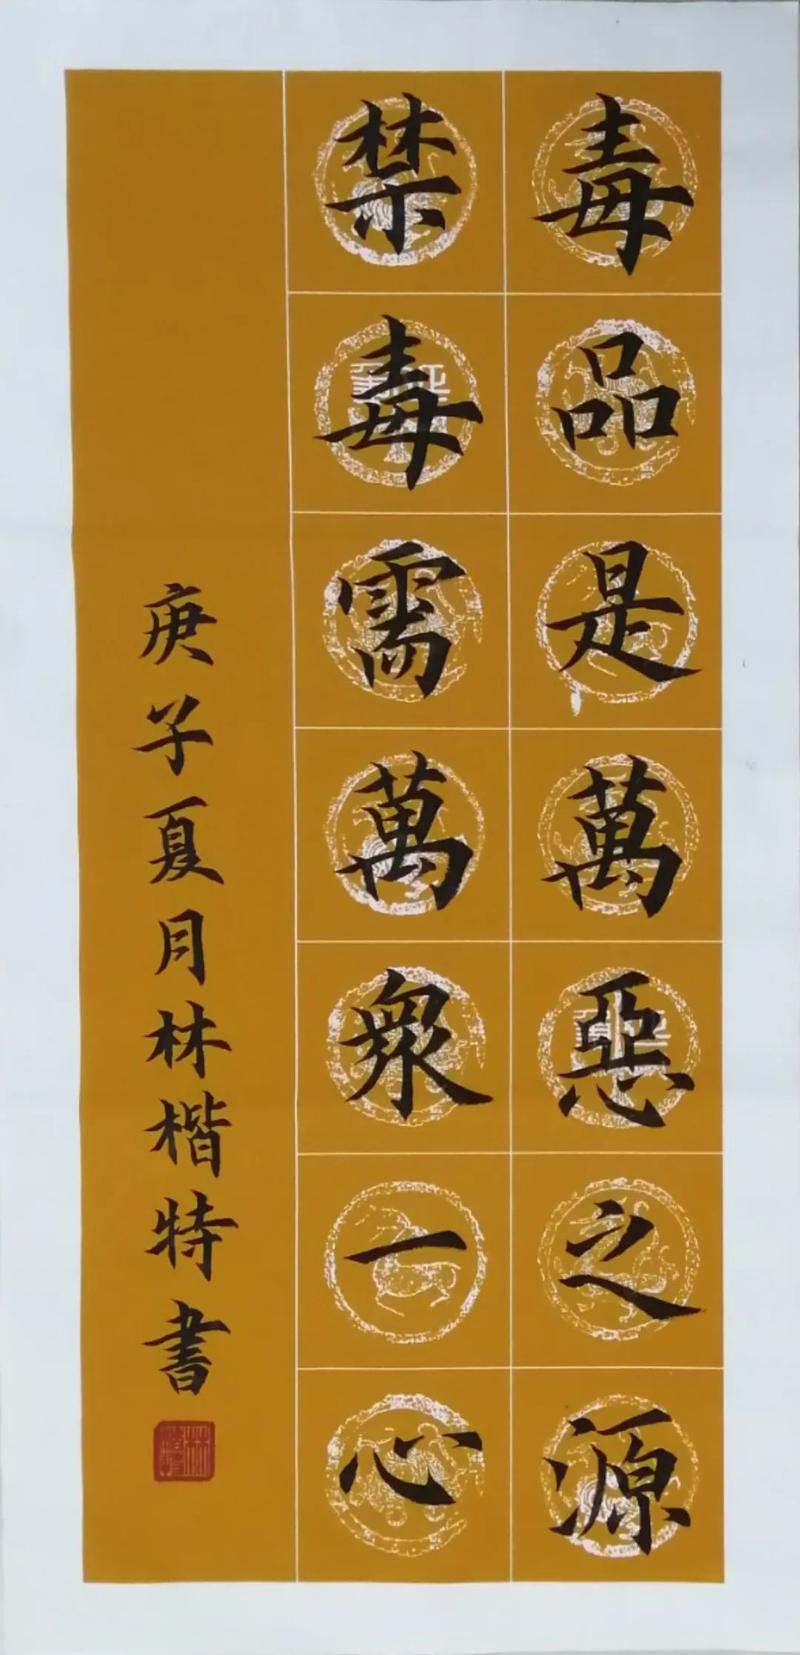 毒品是萬惡之源
禁毒需萬衆一心
庚子夏月林楷特書